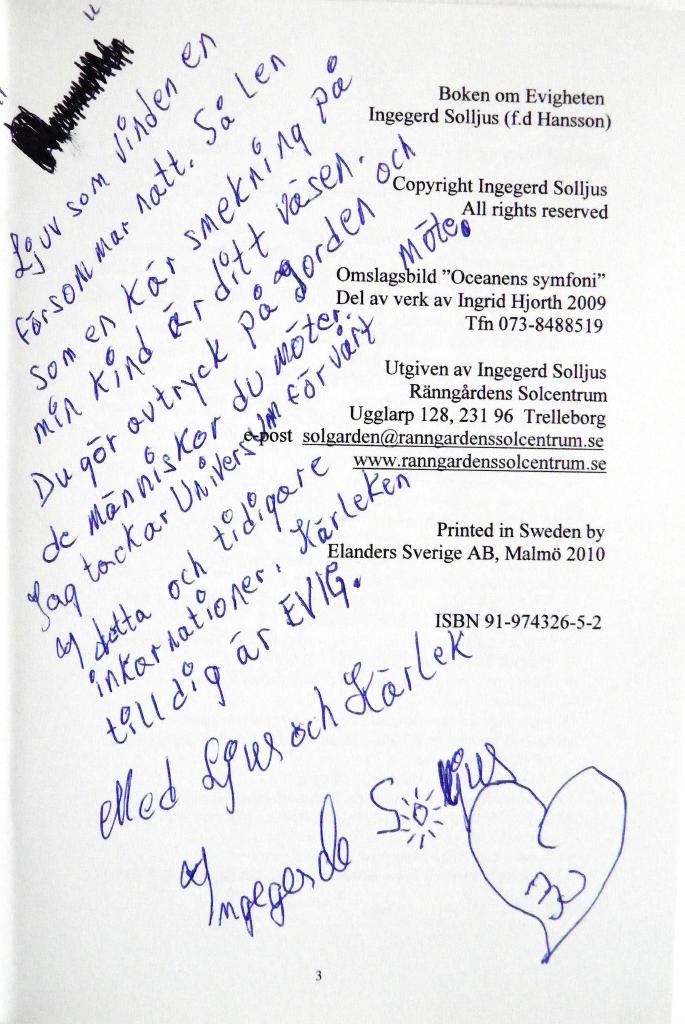 Ljuv som vinden en
försommarnatt. Så len
som en kär smekning på
min kind är ditt väsen.
Du gör avtryck på jorden och
de människor du möter.
Jag tackar Universum för vårt möte.
detta och tidigare
inkarnationer. Kärleken
till dig är EVIG.
Med Ljus och Kärlek
Ingegerd Solljus
Boken om Evigheten
Ingegerd Solljus (f.d Hansson)
Copyright Ingegerd Solljus
All rights reserved
Omslagsbild ”Oceanens symfoni”
Del av verk av Ingrid Hjorth 2009
Tfn 073-8488519
Utgiven av Ingegerd Solljus
Ränngårdens Solcentrum
Ugglarp 128, 231 96 Trelleborg
e-post solgarden@ranngardenssolcentrum.se
www.ranngardenssolcentrum.se
Printed in Sweden by
Elanders Sverige AB, Malmö 2010
ISBN 91-974326-5-2
3